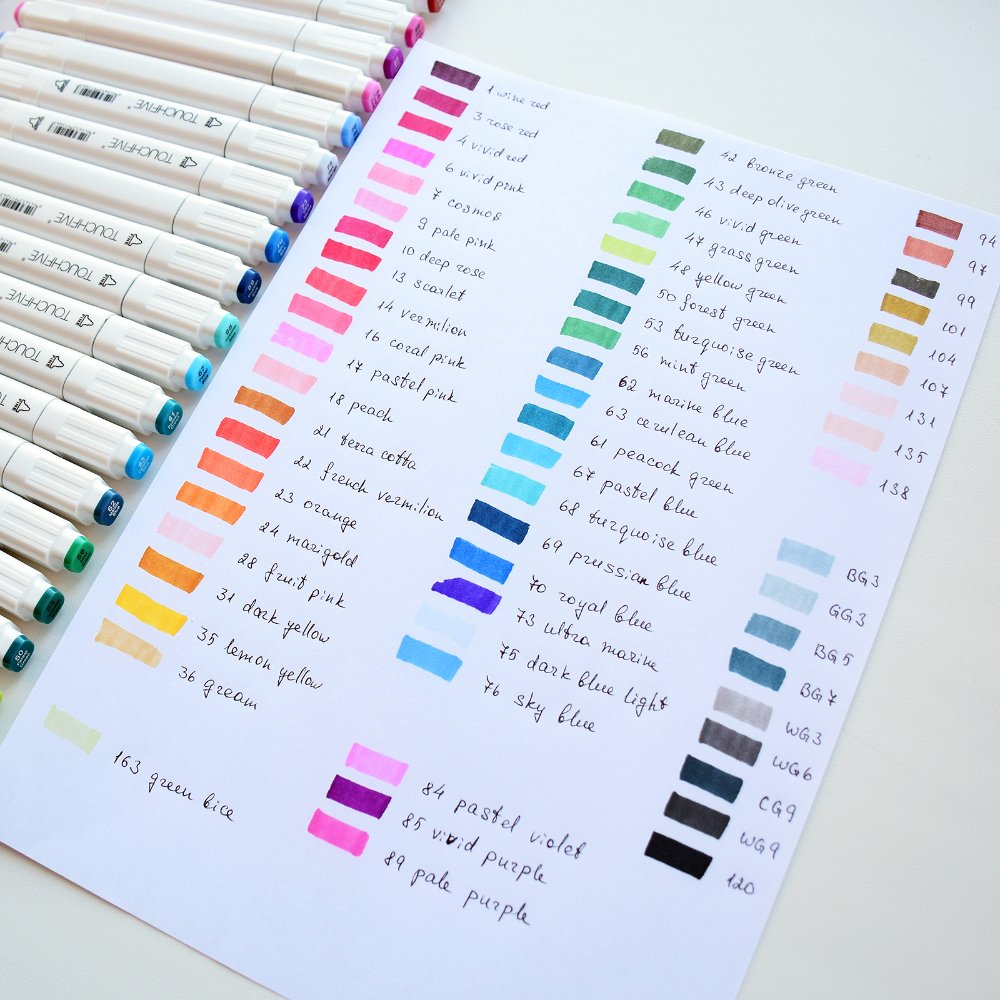 TOUCHFIVE
TOUCHFIVE
TOUCHFIVE
TOUCHFIVE
TOUCHFIVE
TOUCHFIVE
1 wine red
3 rose red
4 vivid red
6 vivid pink
7 cosmos
9 pale pink
10 deep rose
13 scarlet
14 vermilion
16 coral pink
17 pastel pink
18 peach
21 terra cotta
22 french vermilion
23 orange
24 marigold
28 fruit pink
31 dark yellow
35 lemon yellow
36 gream
163 green bice
42 bronze green
43 deep olive green
46 vivid green
47 grass green
48 yellow green
50 forest green
53 turquoise green
56 mint green
62 marine blue
63 cerulean blue
61 peacock green
67 pastel blue
68 turquoise blue
69 prussian blue
70 royal blue
73 ultra marine
75 dark blue light
76 sky blue
84 pastel violet
85 vivid purple
89 pale purple
94
97
99
101
104
107
131
135
138
BG3
GG3
BG5
BG7
WG3
WG6
CG9
WG9
120